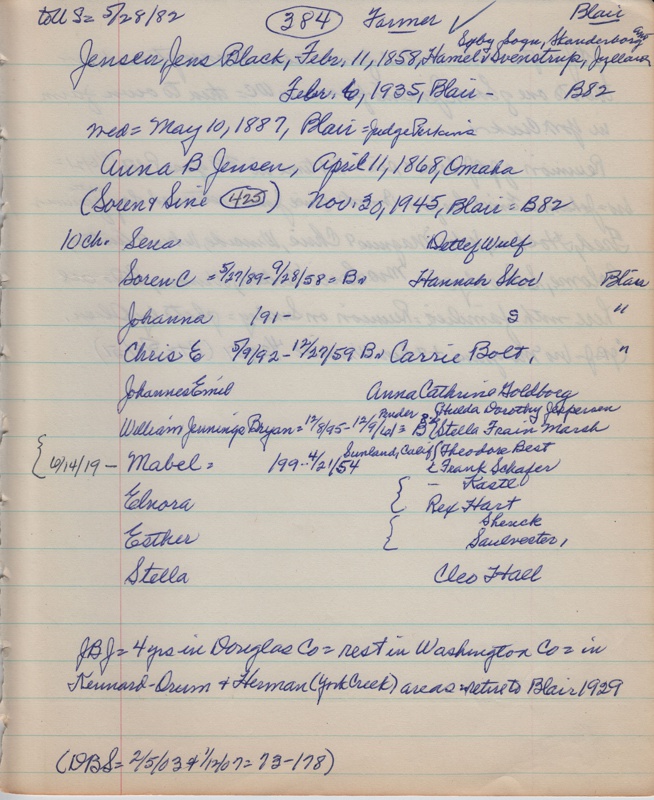 toll S = 5/28/82 384 Farmer ✓ Blair
Sørby Sogn, Skanderborg Amp
Jensen, Jens Black, - Febr. 11, 1858, Hamel & Svenstrup, Jylland
Febr. 6, 1935, Blair - B82
wed = May 10, 1887, Blair = Judge Perkins
Anna B Jensen, April 11, 1868, Omaha
(Soren & Sine 425) Nov. 30, 1945, Blair = B82
10 ch. Sena Detlef Wulf
Soren C = 5/27/89 - 9/28/58 = Bn Hannah Skov Blair
Johanna 191- S "
Chris E 5/9/92 - 12/27/59 Bn Carrie Bolt, "
Johannes Emil Anna Cathrine Goldborg
Pender { Hulda Dorothy Jeppersen
William Jennings Bryan = 12/8/95 - 12/9/61 = B82 { Stella Frain Marsh
Sunland, Calif { Theodore Best
{ 6/14/19 - Mabel = 199 - 4/21/54 { Frank Schafer
{ - Kastl
Elnora Rex Hart
{ Shenck
Esther Saulvester,
Stella Cleo Hall
JBJ = 4 yrs in Douglas Co = rest in Washington Co = in
Kennard - Orum & Herman (York Creek) areas = retire to Blair 1929
(DBS = 2/5/03 & 1/12/07 = 73-178)